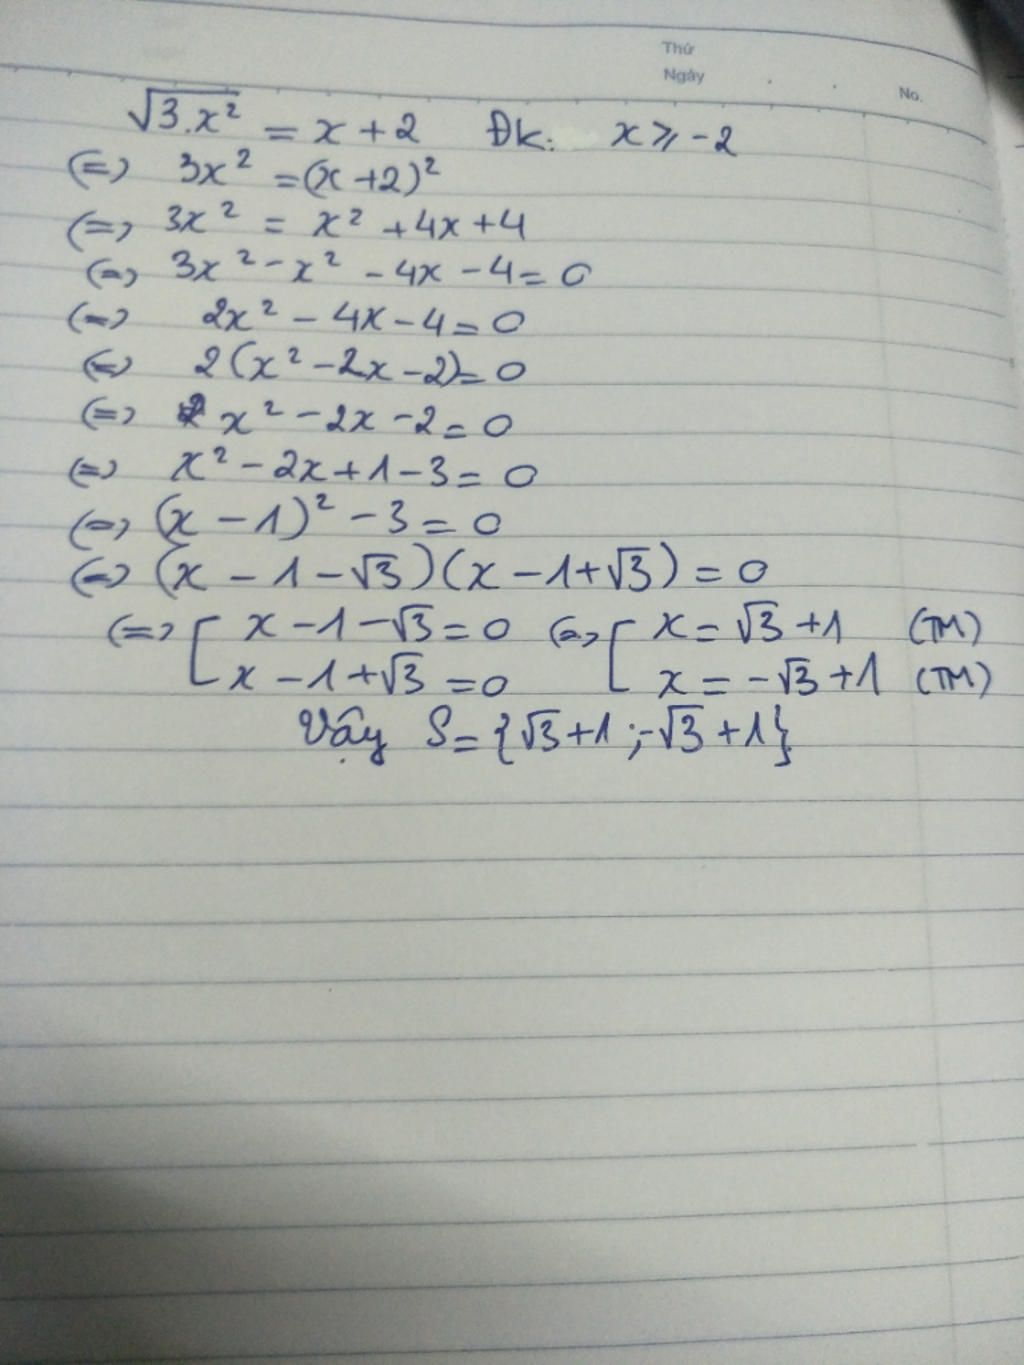 Thứ
Ngày
No.
√3.x² = x + 2 Đk: x ≥ -2
(=) 3x² = (x +2)²
(=) 3x² = x² + 4x + 4
(=) 3x² - x² - 4x - 4 = 0
(=) 2x² - 4x - 4 = 0
(=) 2(x² - 2x - 2) = 0
(=) x² - 2x - 2 = 0
(=) x² - 2x + 1 - 3 = 0
(=) (x - 1)² - 3 = 0
(=) (x - 1 - √3)(x - 1 + √3) = 0
(=) [ x - 1 - √3 = 0 (=) [ x = √3 + 1 (TM)
x - 1 + √3 = 0 x = -√3 + 1 (TM)
Vậy S = {√3 + 1 ; -√3 + 1}